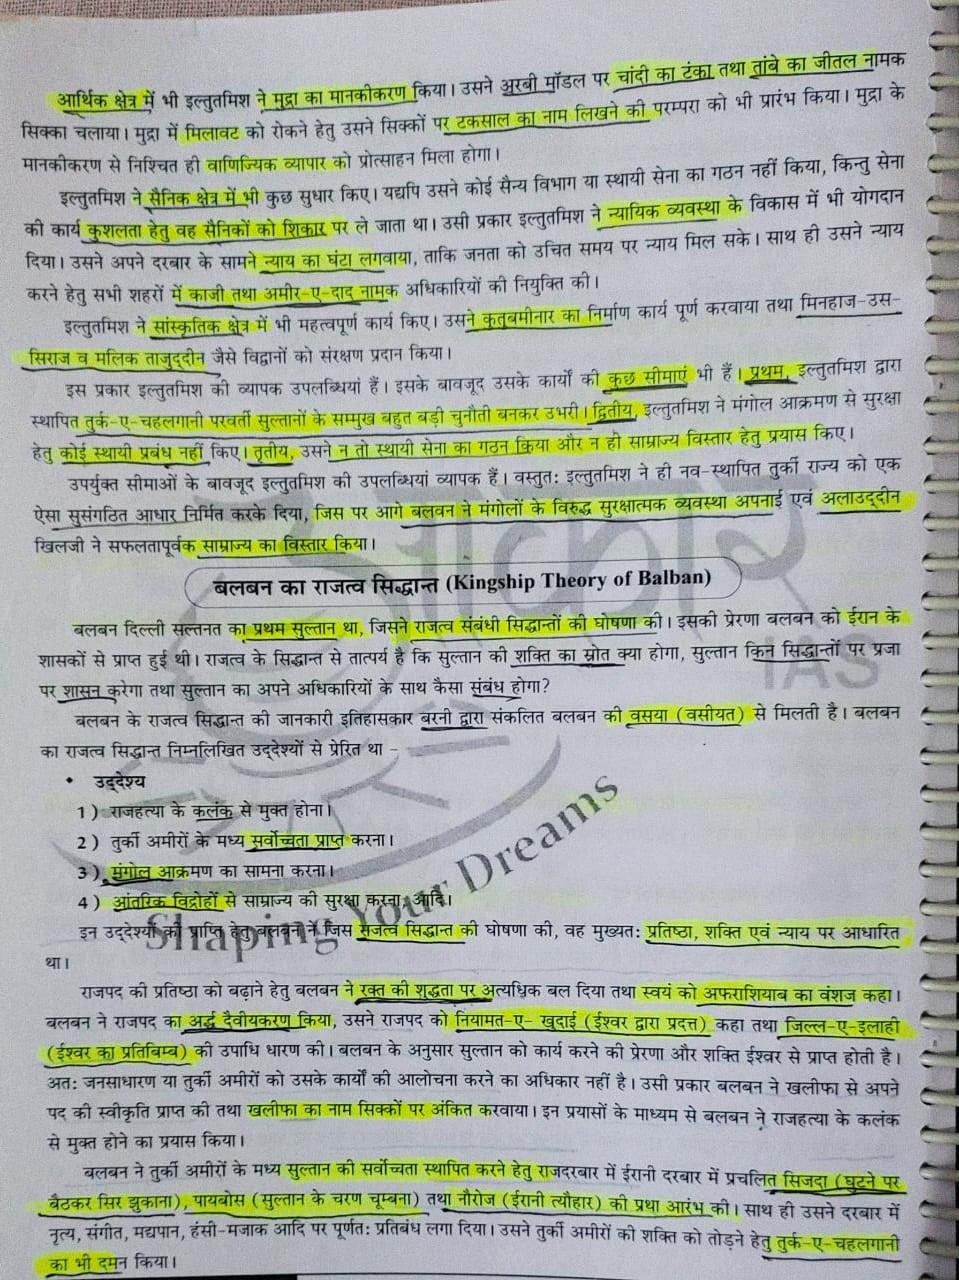 आर्थिक क्षेत्र में भी इल्तुतमिश ने मुद्रा का मानकीकरण किया। उसने अरबी मॉडल पर चांदी का टंका तथा तांबे का जीतल नामक
सिक्का चलाया। मुद्रा में मिलावट को रोकने हेतु उसने सिक्कों पर टकसाल का नाम लिखने की परम्परा को भी प्रारंभ किया। मुद्रा के
मानकीकरण से निश्चित ही वाणिज्यिक व्यापार को प्रोत्साहन मिला होगा।
इल्तुतमिश ने सैनिक क्षेत्र में भी कुछ सुधार किए। यद्यपि उसने कोई सैन्य विभाग या स्थायी सेना का गठन नहीं किया, किन्तु सेना
की कार्य कुशलता हेतु वह सैनिकों को शिकार पर ले जाता था। उसी प्रकार इल्तुतमिश ने न्यायिक व्यवस्था के विकास में भी योगदान
दिया। उसने अपने दरबार के सामने न्याय का घंटा लगवाया, ताकि जनता को उचित समय पर न्याय मिल सके। साथ ही उसने न्याय
करने हेतु सभी शहरों में काजी तथा अमीर-ए-दाद नामक अधिकारियों की नियुक्ति की।
इल्तुतमिश ने सांस्कृतिक क्षेत्र में भी महत्वपूर्ण कार्य किए। उसने कुतुबमीनार का निर्माण कार्य पूर्ण करवाया तथा मिनहाज-उस-
सिराज व मलिक ताजुद्दीन जैसे विद्वानों को संरक्षण प्रदान किया।
इस प्रकार इल्तुतमिश की व्यापक उपलब्धियां हैं। इसके बावजूद उसके कार्यों की कुछ सीमाएं भी हैं। प्रथम, इल्तुतमिश द्वारा
स्थापित तुर्क-ए-चहलगानी परवर्ती सुल्तानों के सम्मुख बहुत बड़ी चुनौती बनकर उभरी। द्वितीय, इल्तुतमिश ने मंगोल आक्रमण से सुरक्षा
हेतु कोई स्थायी प्रबंध नहीं किए। तृतीय, उसने न तो स्थायी सेना का गठन किया और न ही साम्राज्य विस्तार हेतु प्रयास किए।
उपर्युक्त सीमाओं के बावजूद इल्तुतमिश की उपलब्धियां व्यापक हैं। वस्तुत: इल्तुतमिश ने ही नव-स्थापित तुर्की राज्य को एक
ऐसा सुसंगठित आधार निर्मित करके दिया, जिस पर आगे बलवन ने मंगोलों के विरुद्ध सुरक्षात्मक व्यवस्था अपनाई एवं अलाउद्दीन
खिलजी ने सफलतापूर्वक साम्राज्य का विस्तार किया।
बलबन का राजत्व सिद्धान्त (Kingship Theory of Balban)
बलबन दिल्ली सल्तनत का प्रथम सुल्तान था, जिसने राजत्व संबंधी सिद्धान्तों की घोषणा की। इसकी प्रेरणा बलबन को ईरान के
शासकों से प्राप्त हुई थी। राजत्व के सिद्धान्त से तात्पर्य है कि सुल्तान की शक्ति का स्रोत क्या होगा, सुल्तान किन सिद्धान्तों पर प्रजा
पर शासन करेगा तथा सुल्तान का अपने अधिकारियों के साथ कैसा संबंध होगा?
बलबन के राजत्व सिद्धान्त की जानकारी इतिहासकार बरनी द्वारा संकलित बलबन की वसया (वसीयत) से मिलती है। बलबन
का राजत्व सिद्धान्त निम्नलिखित उद्देश्यों से प्रेरित था –
• उद्देश्य
1) राजहत्या के कलंक से मुक्त होना।
2) तुर्की अमीरों के मध्य सर्वोच्चता प्राप्त करना।
3) मंगोल आक्रमण का सामना करना।
4) आंतरिक विद्रोहों से साम्राज्य की सुरक्षा करना, आदि।
इन उद्देश्यों की प्राप्ति हेतु बलबन ने जिस राजत्व सिद्धान्त की घोषणा की, वह मुख्यत: प्रतिष्ठा, शक्ति एवं न्याय पर आधारित
था।
राजपद की प्रतिष्ठा को बढ़ाने हेतु बलबन ने रक्त की शुद्धता पर अत्यधिक बल दिया तथा स्वयं को अफराशियाब का वंशज कहा।
बलबन ने राजपद का अर्द्ध दैवीयकरण किया, उसने राजपद को नियामत-ए- खुदाई (ईश्वर द्वारा प्रदत्त) कहा तथा जिल्ल-ए-इलाही
(ईश्वर का प्रतिबिम्ब) की उपाधि धारण की। बलबन के अनुसार सुल्तान को कार्य करने की प्रेरणा और शक्ति ईश्वर से प्राप्त होती है।
अत: जनसाधारण या तुर्की अमीरों को उसके कार्यों की आलोचना करने का अधिकार नहीं है। उसी प्रकार बलबन ने खलीफा से अपने
पद की स्वीकृति प्राप्त की तथा खलीफा का नाम सिक्कों पर अंकित करवाया। इन प्रयासों के माध्यम से बलबन ने राजहत्या के कलंक
से मुक्त होने का प्रयास किया।
बलबन ने तुर्की अमीरों के मध्य सुल्तान की सर्वोच्चता स्थापित करने हेतु राजदरबार में ईरानी दरबार में प्रचलित सिजदा (घुटने पर
बैठकर सिर झुकाना), पायबोस (सुल्तान के चरण चूम्बना) तथा नौरोज (ईरानी त्यौहार) की प्रथा आरंभ की। साथ ही उसने दरबार में
नृत्य, संगीत, मद्यपान, हंसी-मजाक आदि पर पूर्णत: प्रतिबंध लगा दिया। उसने तुर्की अमीरों की शक्ति को तोड़ने हेतु तुर्क-ए-चहलगानी
का भी दमन किया।
आकार
IAS
Shaping Your Dreams